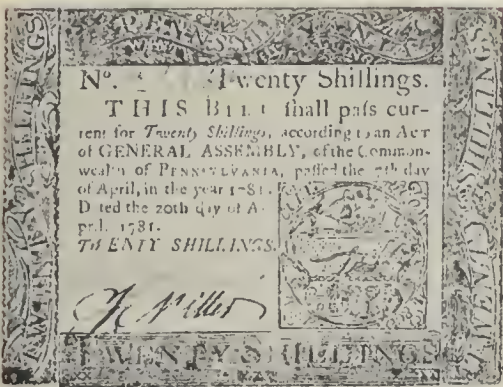 PENNSYLVANIA
Nº. Twenty Shillings.
THIS BILL ſhall paſs cur-
rent for Twenty Shillings, according to an ACT
of GENERAL ASSEMBLY, of the Common-
wealth of PENNSYLVANIA, paſſed the 7th day
of April, in the year 1781.
Dated the 20th day of A-
pril, 1781.
TWENTY SHILLINGS.
TWENTY SHILLINGS
TWENTY SHILLINGS
TWENTY SHILLINGS